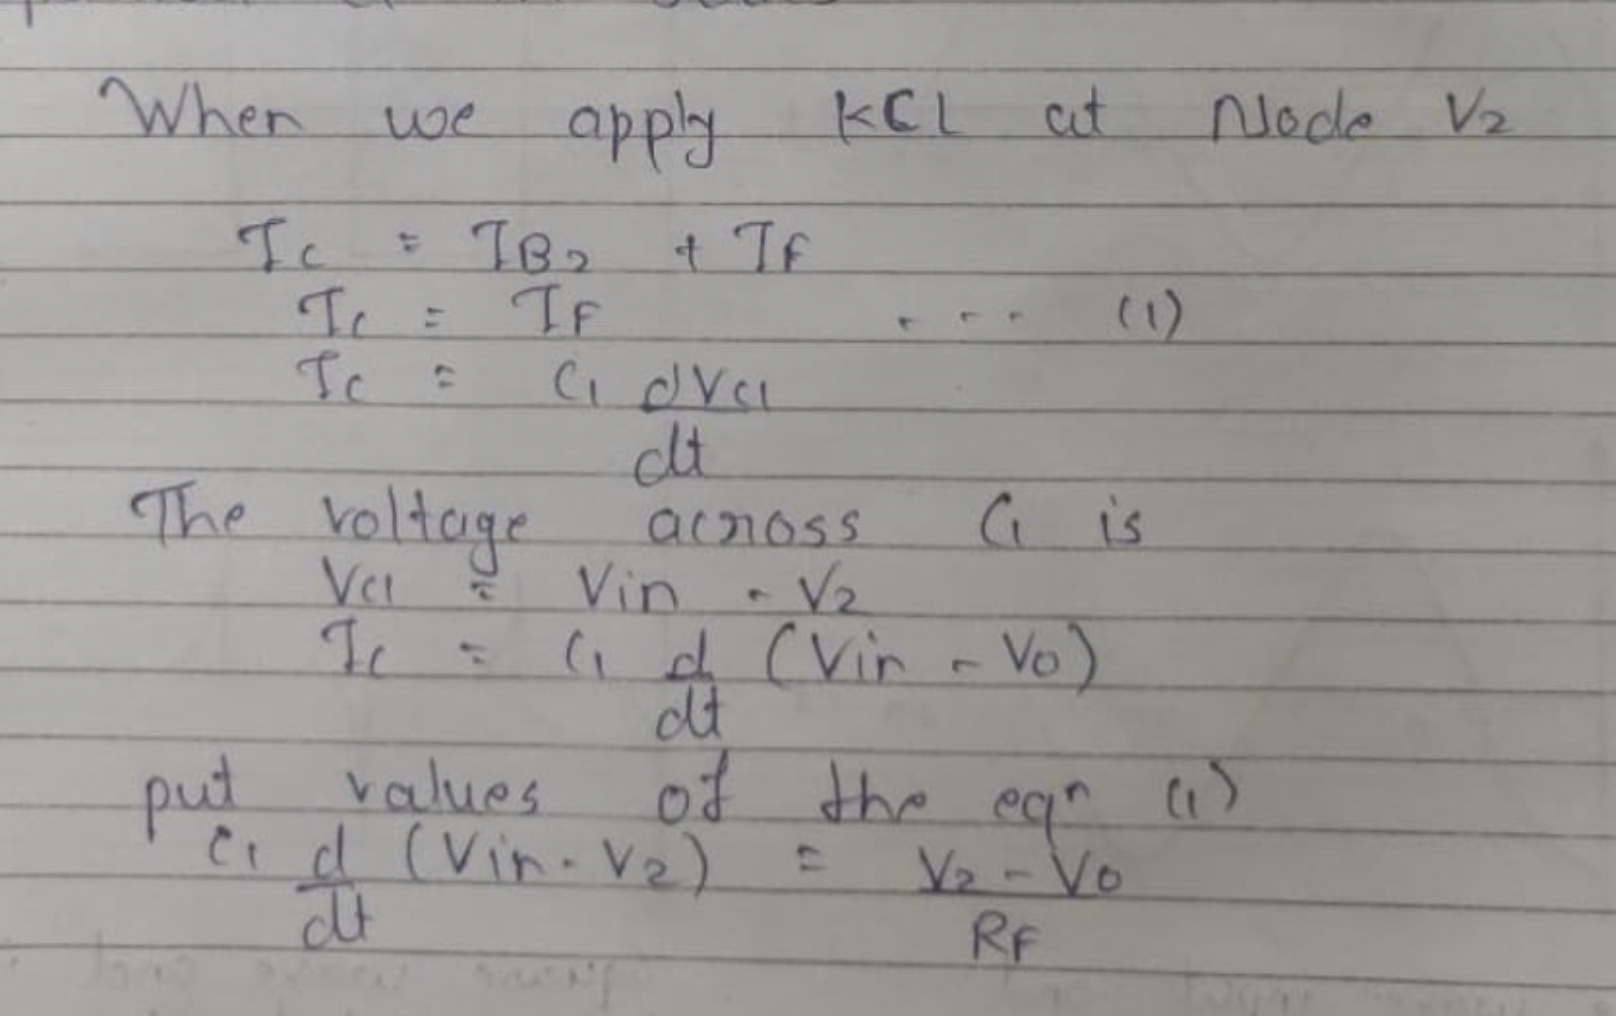 When we apply KCL at Node V2
IC = IB2 + IF
IC = IF ---- (1)
IC = C1 dVC1
dt
The voltage across C1 is
VC1 = Vin - V2
IC = C1 d (Vin - V0)
dt
put values of the eqn (1)
C1 d (Vin - V2) = V2 - V0
dt RF